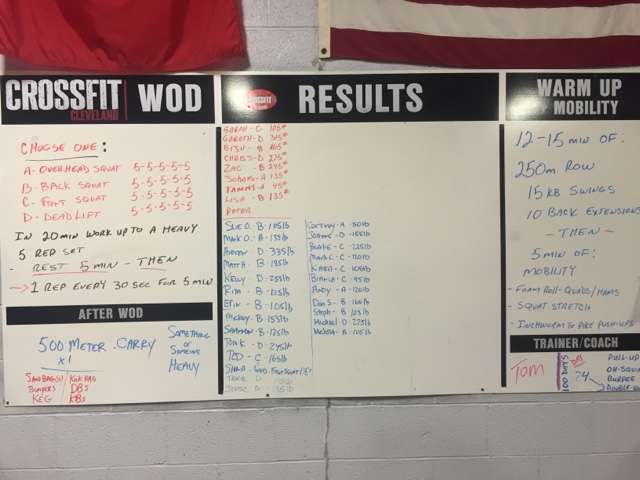 CROSSFIT
CLEVELAND
WOD
CHOOSE ONE:
A- OVERHEAD SQUAT 5-5-5-5-5
B- BACK SQUAT 5-5-5-5-5
C- FONT SQUAT 5-5-5-5-5
D- DEADLIFT 5-5-5-5-5
IN 20 MIN WORK UP TO A HEAVY
5 REP SET
- REST 5 MIN - THEN
→ 1 REP EVERY 30 SEC FOR 5 MIN
AFTER WOD
500 METER CARRY
x1
SOMETHING
OR
SOMEONE
HEAVY
SANDBAG(S)
BUMPERS
KEG
KICK BAG
DBs
KBs
CROSSFIT
RESULTS
SARAH - C 105#
GARETH - D 315#
BIJU - B 165#
CHRIS - D 275#
ZAC - B 245#
A 135#
TAMMY - A 45#
LISA - B 135#
PETER
SUE O. B 105lb
MARK O. A - 135lb
ANDREW D - 335lb
MATT H B - 185lb
KELLY D - 255lb
KIM B - 125lb
ERIN B - 105lb
MICKEY - B - 155lb
SHANNON - B - 125lb
D - 245lb
TED - C 165lb
Courtney - A - 50lb
Joanne - D - 155lb
BLAKE - C - 225lb
MARK C - C - 120lb
KARA - C 105lb
Bianca - C - 95lb
Andy - A - 120lb
Dan S. B 160lb
Steph - B 105lb
Michael D 275lb
Melissa - A 105lb
WARM UP
MOBILITY
12-15 MIN OF:
250M ROW
15 KB SWINGS
10 BACK EXTENSIONS
- THEN -
5 MIN OF:
MOBILITY
- FOAM ROLL - QUADS/HAMS
- SQUAT STRETCH
- INCHWORM TO PIKE PUSH-UPS
TRAINER/COACH
TOM
100 DAYS
DAY
24
PULL-UP
OH-SQUA
BURPEE
DOUBLE-U